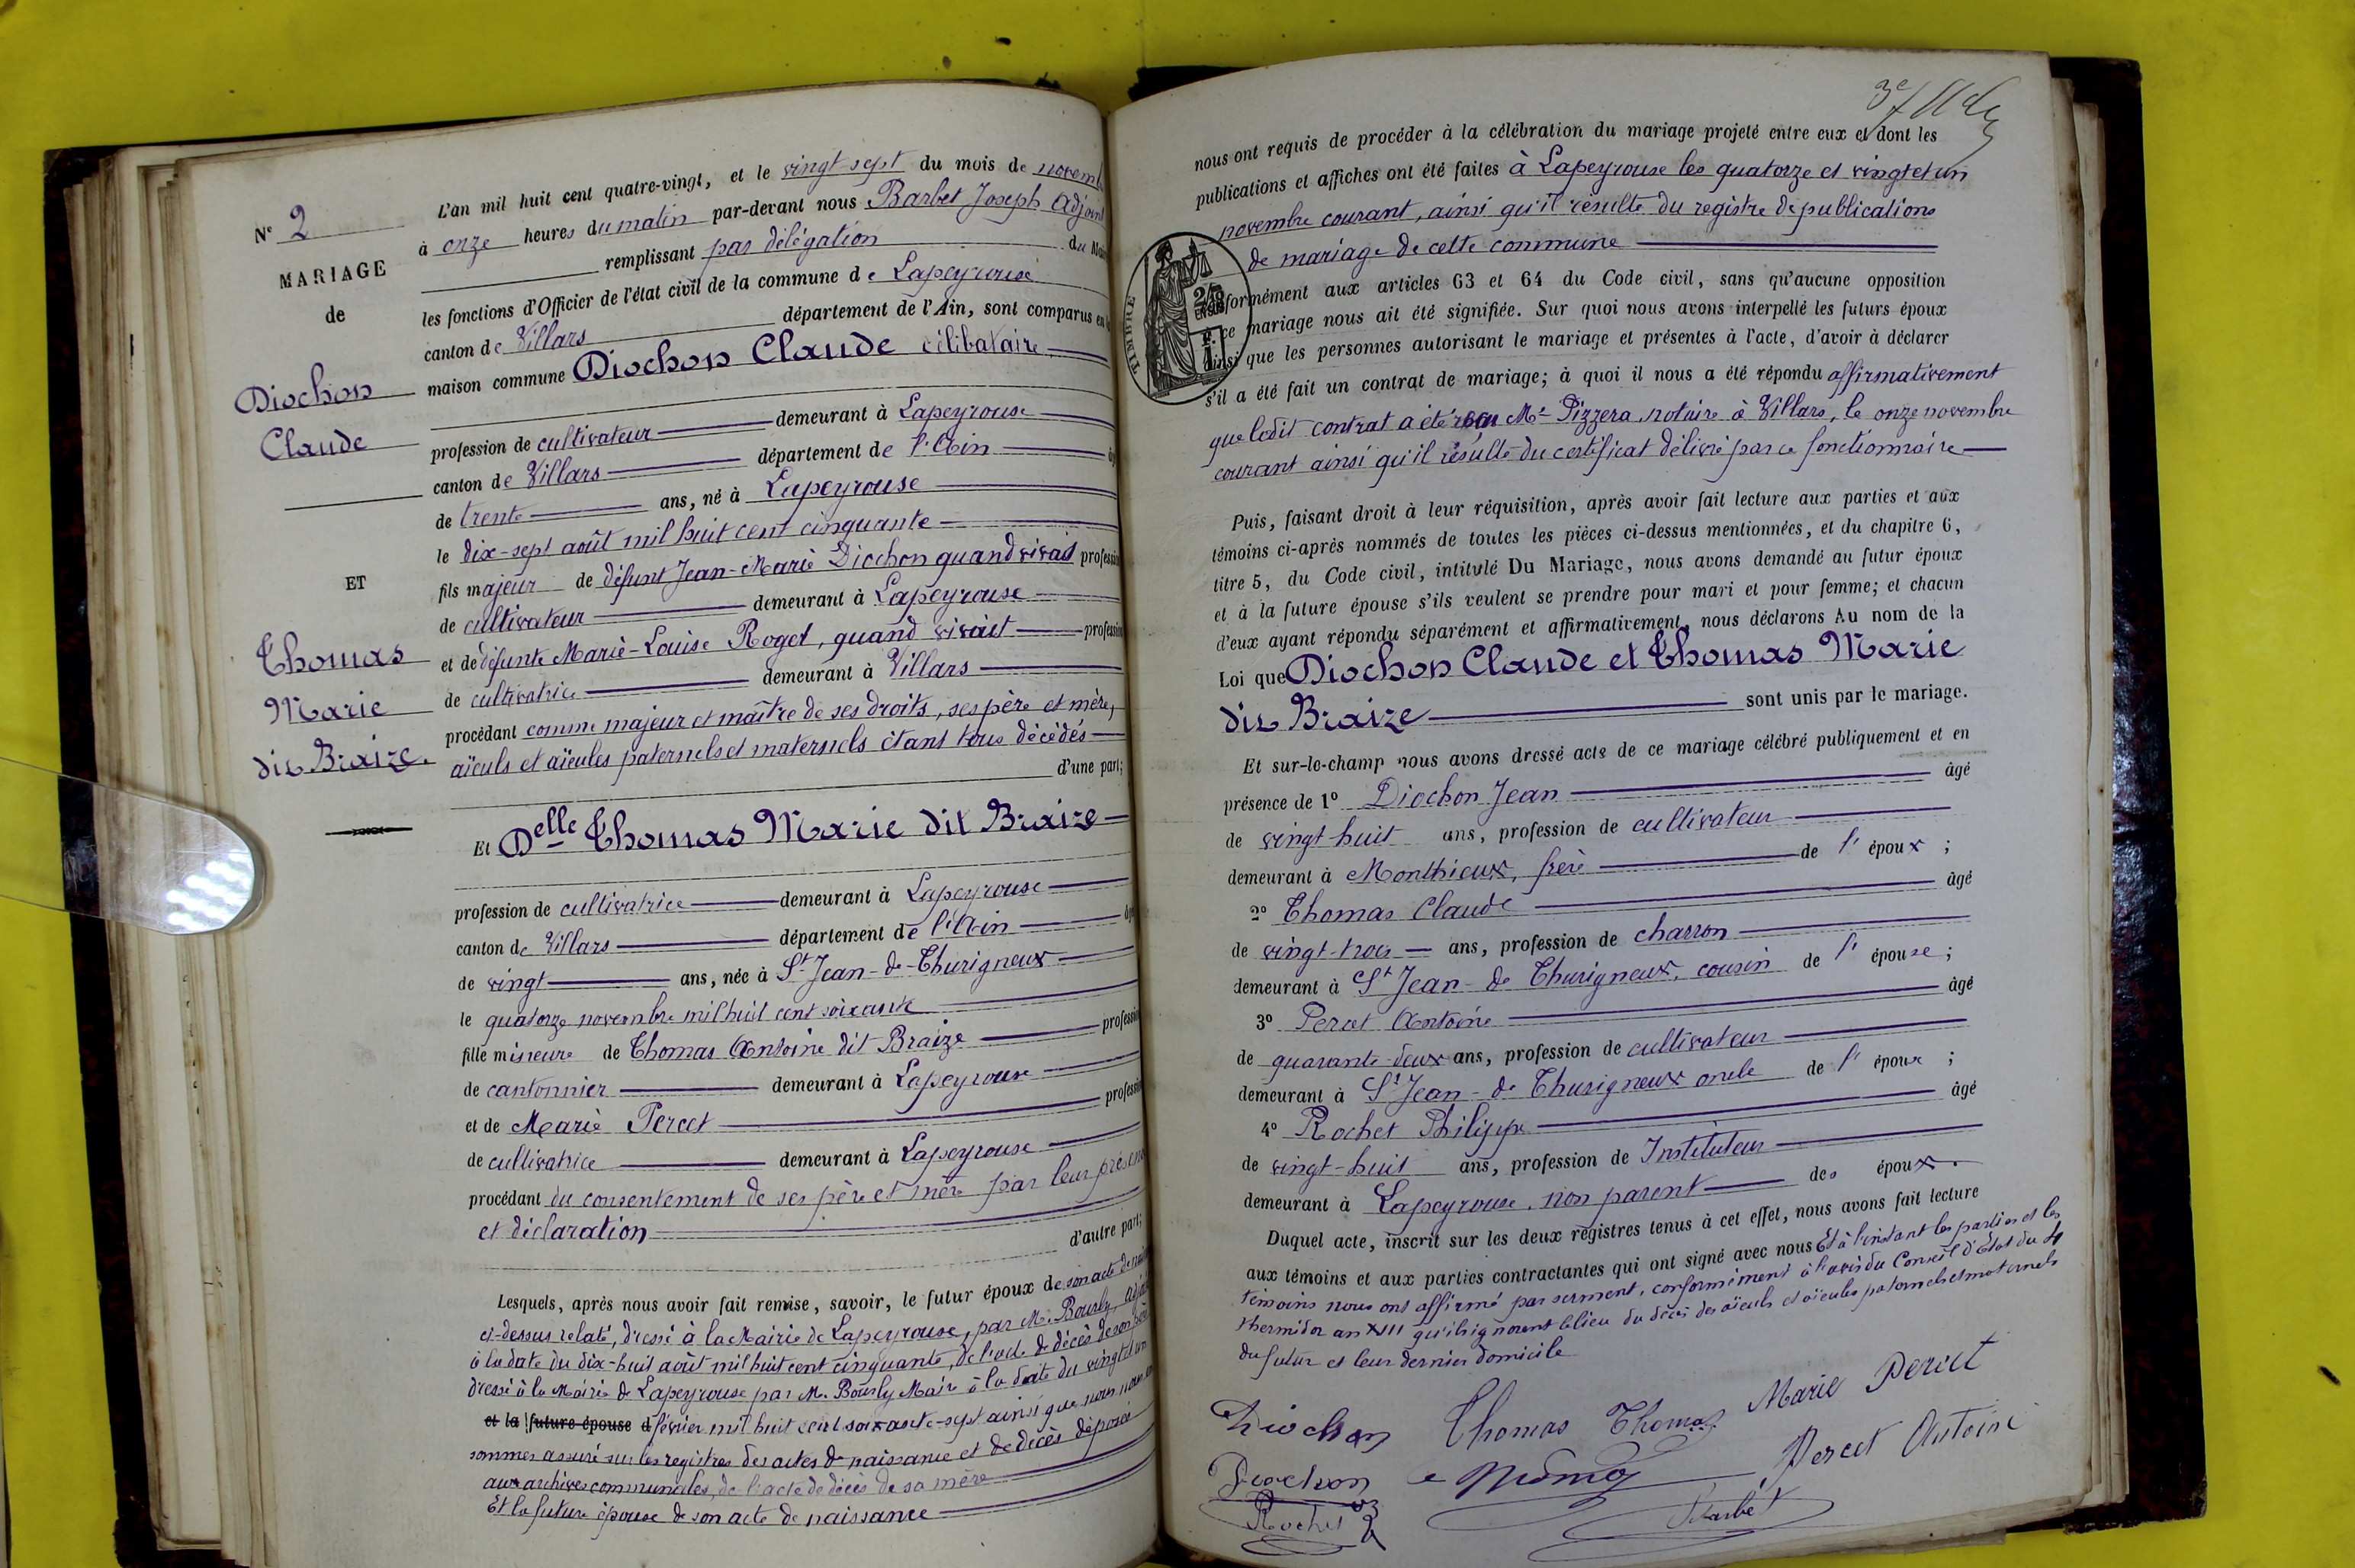 N° 2
MARIAGE
de
Diochon
Claude
ET
Thomas
Marie
dit Braize.
L'an mil huit cent quatre-vingt, et le vingt sept du mois de novemb
à onze heures du matin par-devant nous Barbet Joseph Adjoint
remplissant par délégation du Maire
les fonctions d'Officier de l'état civil de la commune de Lapeyrouse
canton de Villars département de l'Ain, sont comparus en la
maison commune Diochon Claude célibataire
profession de cultivateur demeurant à Lapeyrouse
canton de Villars département de l'Ain âgé
de trente ans, né à Lapeyrouse
le dix-sept août mil huit cent cinquante
fils majeur de défunt Jean-Marie Diochon quand vivait profession
de cultivateur demeurant à Lapeyrouse
et de défunte Marie-Louise Roget, quand vivait profession
de cultivatrice demeurant à Villars
procédant comme majeur et maître de ses droits, ses père et mère,
aïeuls et aïeules paternels et maternels étant tous décédés
d'une part;
Et Delle Thomas Marie dit Braize
profession de cultivatrice demeurant à Lapeyrouse
canton de Villars département de l'Ain âgée
de vingt ans, née à St Jean-de-Thurigneux
le quatorze novembre mil huit cent soixante
fille mineure de Thomas Antoine dit Braize profession
de cantonnier demeurant à Lapeyrouse
et de Marie Percet profession
de cultivatrice demeurant à Lapeyrouse
procédant du consentement de ses père et mère par leur présence
et déclaration
d'autre part;
Lesquels, après nous avoir fait remise, savoir, le futur époux de son acte de nais
ci-dessus relaté, dressé à la Mairie de Lapeyrouse, par M. Bourly, adjoint
à la date du dix-huit août mil huit cent cinquante, de l'acte de décès de son père
dressé à la Mairie de Lapeyrouse par M. Bourly Maire à la date du vingt et un
et la future épouse d février mil huit cent soixante-sept ainsi que nous nous en
sommes assuré sur les registres des actes de naissance et de décès déposé
aux archives communales, de l'acte de décès de sa mère
Et la future épouse de son acte de naissance
nous ont requis de procéder à la célébration du mariage projeté entre eux et dont les
publications et affiches ont été faites à Lapeyrouse les quatorze et vingt et un
novembre courant, ainsi qu'il résulte du registre de publications
de mariage de cette commune
TIMBRE
conformément aux articles 63 et 64 du Code civil, sans qu'aucune opposition
à ce mariage nous ait été signifiée. Sur quoi nous avons interpellé les futurs époux
ainsi que les personnes autorisant le mariage et présentes à l'acte, d'avoir à déclarer
s'il a été fait un contrat de mariage; à quoi il nous a été répondu affirmativement
que ledit contrat a été reçu Me Pizzera, notaire à Villars, le onze novembre
courant ainsi qu'il résulte du certificat délivré par ce fonctionnaire
Puis, faisant droit à leur réquisition, après avoir fait lecture aux parties et aux
témoins ci-après nommés de toutes les pièces ci-dessus mentionnées, et du chapitre 6,
titre 5, du Code civil, intitulé Du Mariage, nous avons demandé au futur époux
et à la future épouse s'ils veulent se prendre pour mari et pour femme; et chacun
d'eux ayant répondu séparément et affirmativement, nous déclarons Au nom de la
Loi que Diochon Claude et Thomas Marie
dit Braize sont unis par le mariage.
Et sur-le-champ nous avons dressé acte de ce mariage célébré publiquement et en
présence de 1° Diochon Jean âgé
de vingt huit ans, profession de cultivateur
demeurant à Monthieux, frère de l'époux;
2° Thomas Claude âgé
de vingt-trois ans, profession de charron
demeurant à St Jean-de Thurigneux, cousin de l'épouse;
3° Percet Antoine âgé
de quarante-deux ans, profession de cultivateur
demeurant à St Jean-de Thurigneux oncle de l'époux;
4° Rochet Philippe âgé
de vingt-huit ans, profession de Instituteur
demeurant à Lapeyrouse, non parent des époux.
Duquel acte, inscrit sur les deux registres tenus à cet effet, nous avons fait lecture
aux témoins et aux parties contractantes qui ont signé avec nous Et à l'instant les parties et les
témoins nous ont affirmé par serment, conformément à l'avis du Conseil d'Etat du 4
thermidor an XIII qu'ils ignorent le lieu du décès des aïeuls et aïeules paternels et maternels
du futur et leur dernier domicile
Diochon Thomas Thomas Marie Percet
Diochon Percet Antoine
Rochet Barbet